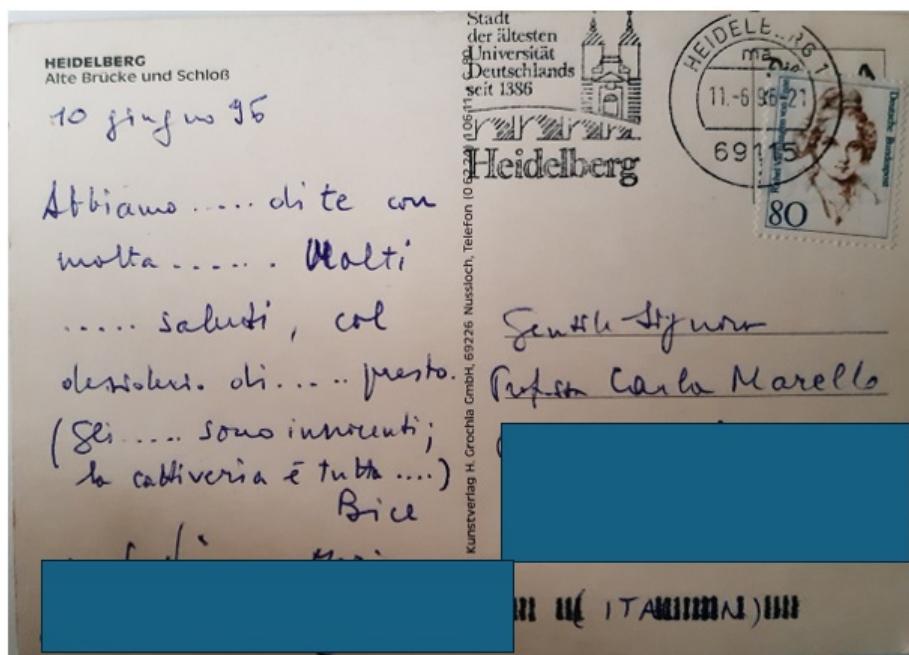 HEIDELBERG
Alte Brücke und Schloß
10 giugno 96
Abbiamo ..... di te con
molta ....... Molti
..... saluti, col
desiderio di ..... presto.
(Gli ..... sono innocenti;
la cattiveria è tutta ....)
Bice
Kunstverlag H. Grochla GmbH, 69226 Nussloch, Telefon (0 62 24)
Stadt
der ältesten
Universität
Deutschlands
seit 1386
Heidelberg
HEIDELBERG 1
11.-6.96-21
69115
Deutsche Bundespost
80
Gentile Signora
Carla Marello
(ITALIEN)